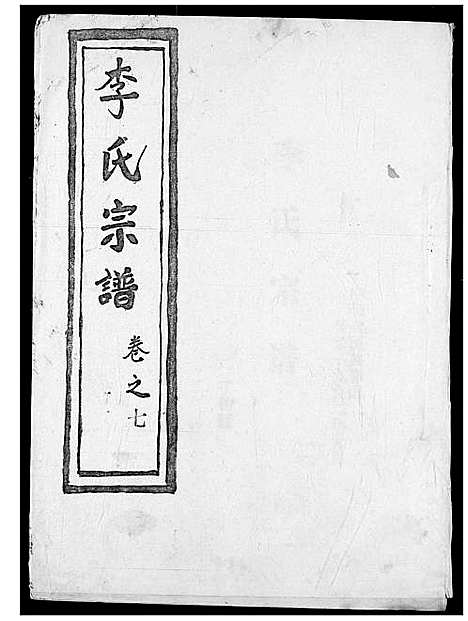 李氏宗譜
卷之七